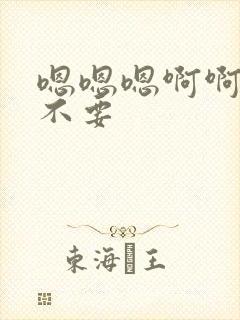 嗯嗯嗯啊啊
不要
东海王